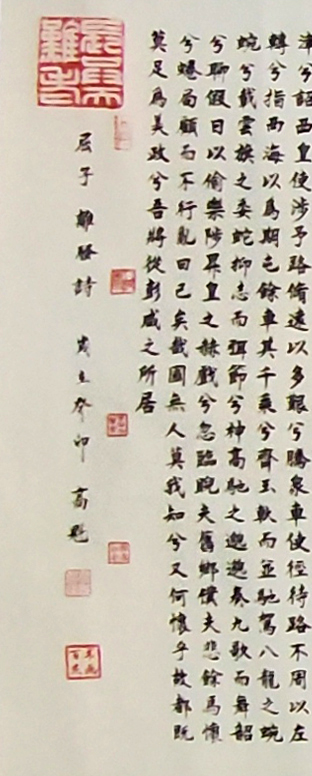 津兮詔西皇使涉予路脩遠以多艱兮騰衆車使徑待路不周以左
轉兮指西海以爲期屯餘車其千乘兮齊玉軑而並馳駕八龍之蜿
蜿兮載雲旗之委蛇抑志而弭節兮神高馳之邈邈奏九歌而舞韶
兮聊假日以偷樂陟昇皇之赫戲兮忽臨睨夫舊鄉僕夫悲餘馬懷
兮蜷局顧而不行亂曰已矣哉國無人莫我知兮又何懷乎故都既
莫足爲美政兮吾將從彭咸之所居
屈子離騷詩 歲立癸卯 高